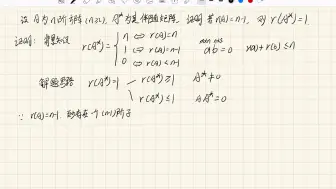 设 A 为 n 阶方阵 (n≥2), A* 为其伴随矩阵, 证明 若 r(A)=n-1, 则 r(A*)=1
证明: 背景知识 r(A*)= { n ⇔ r(A)=n
1 ⇔ r(A)=n-1
0 ⇔ r(A)<n-1
ab=0 r(a)+r(b)≤n
解题思路 r(A*)=1 r(A*)≥1 A*≠0
r(A*)≤1 AA*=0
∵ r(A)=n-1, 则存在一个 (n-1) 阶子